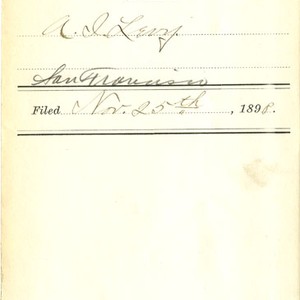 A. I. Levy.
San Francisco
Filed Nov. 25th, 1898.